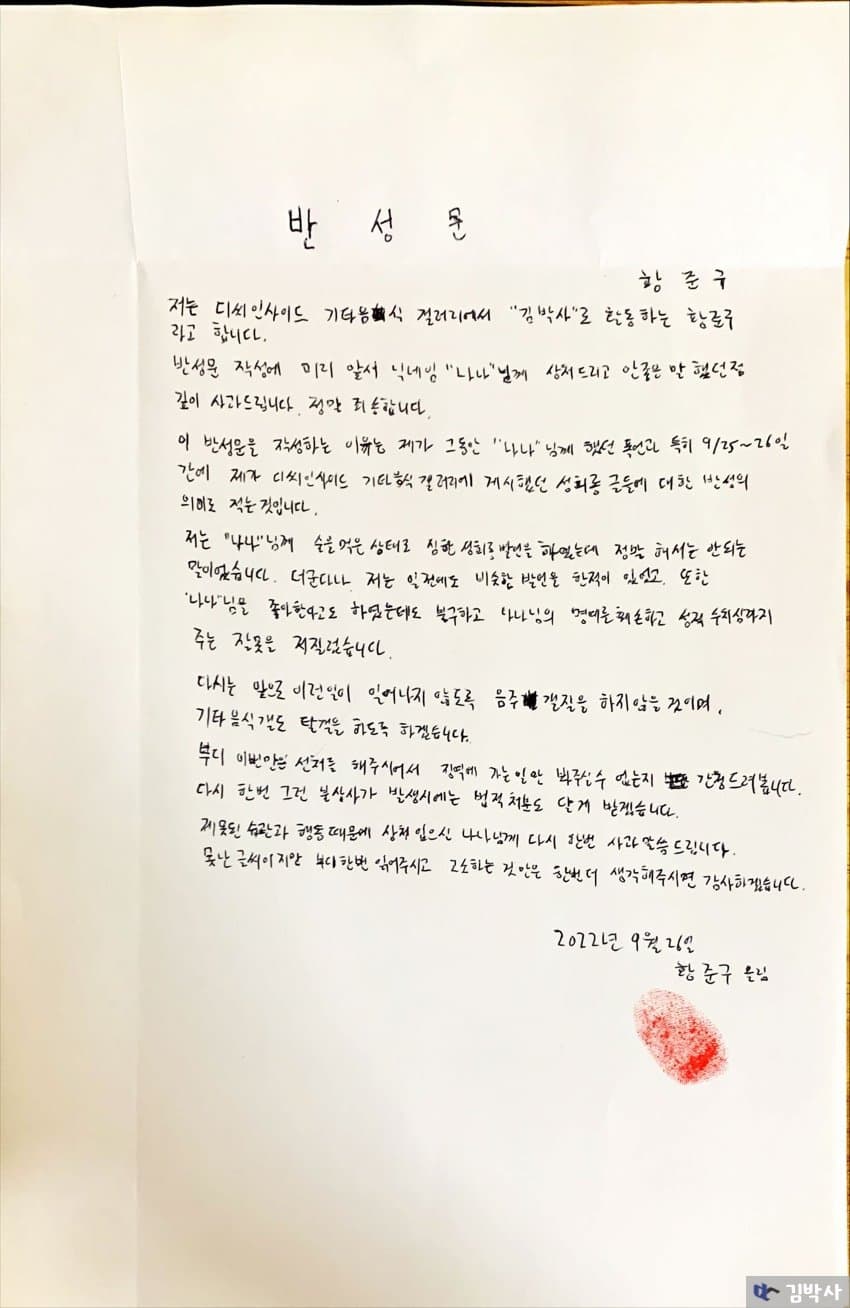 반 성 문
황 준 구
저는 디씨인사이드 기타음식 갤러리에서 "김박사"로 활동하는 황준구
라고 합니다.
반성문 작성에 미리 앞서 닉네임 "나나"님께 상처드리고 안좋은 말 했던점
깊이 사과드립니다. 정말 죄송합니다.
이 반성문을 작성하는 이유는 제가 그동안 "나나"님께 했던 폭언과 특히 9/25~26일
간에 제가 디씨인사이드 기타음식갤러리에 게시했던 성희롱 글들에 대한 반성의
의미로 적는것입니다.
저는 "나나"님께 술을 먹은 상태로 심한 성희롱발언을 하였는데 정말 해서는 안되는
말이었습니다. 더군다나 저는 일전에도 비슷한 발언을 한적이 있었고, 또한
"나나"님을 좋아한다고도 하였는데도 불구하고 나나님의 명예를 훼손하고 성적 수치심까지
주는 잘못을 저질렀습니다.
다시는 앞으로 이런일이 일어나지 않도록 음주 갤질을 하지않을 것이며,
기타음식갤도 탈갤을 하도록 하겠습니다.
부디 이번만은 선처를 해주시어서 징역에 가는일만 봐주실수 없는지 간청드려봅니다.
다시 한번 그런 불상사가 발생시에는 법적처분도 달게 받겠습니다.
제 못된 습관과 행동때문에 상처 입으신 나나님께 다시 한번 사과말씀 드립니다.
못난 글씨이지만 부디한번 읽어주시고 고소하는 것만은 한번더 생각해주시면 감사하겠습니다.
2022년 9월 26일
황준구 올림
김박사